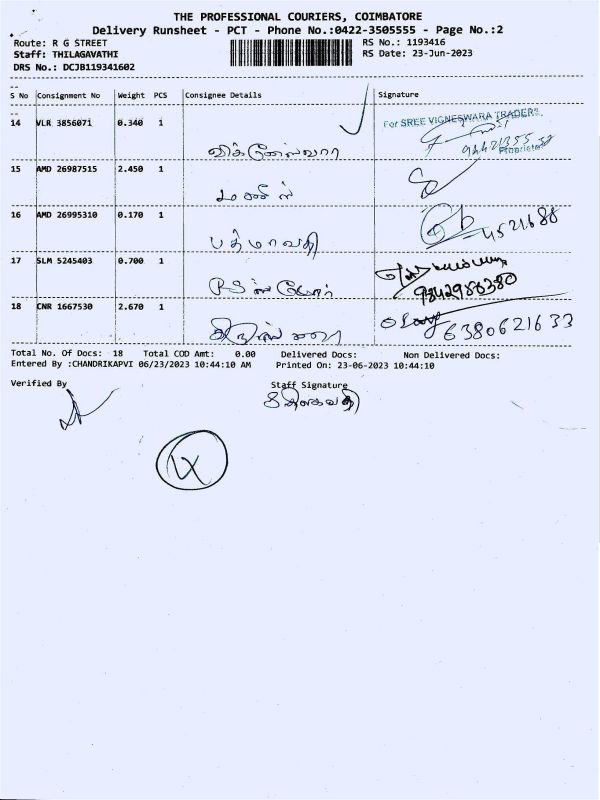 THE PROFESSIONAL COURIERS, COIMBATORE
Delivery Runsheet - PCT - Phone No.:0422-3505555 - Page No.:2
Route: R G STREET RS No.: 1193416
Staff: THILAGAVATHI RS Date: 23-Jun-2023
DRS No.: DCJB119341602
S No Consignment No Weight PCS Consignee Details Signature
14 VLR 3856071 0.340 1 For SREE VIGNESWARA TRADERS
விக்னேஸ்வரா Proprietor
15 AMD 26987515 2.450 1
16 AMD 26995310 0.170 1
பத்மாவதி
17 SLM 5245403 0.700 1
9842988380
18 CNR 1667530 2.670 1
6380621633
Total No. Of Docs: 18 Total COD Amt: 0.00 Delivered Docs: Non Delivered Docs:
Entered By :CHANDRIKAPVI 06/23/2023 10:44:10 AM Printed On: 23-06-2023 10:44:10
Verified By Staff Signature
திலகவதி